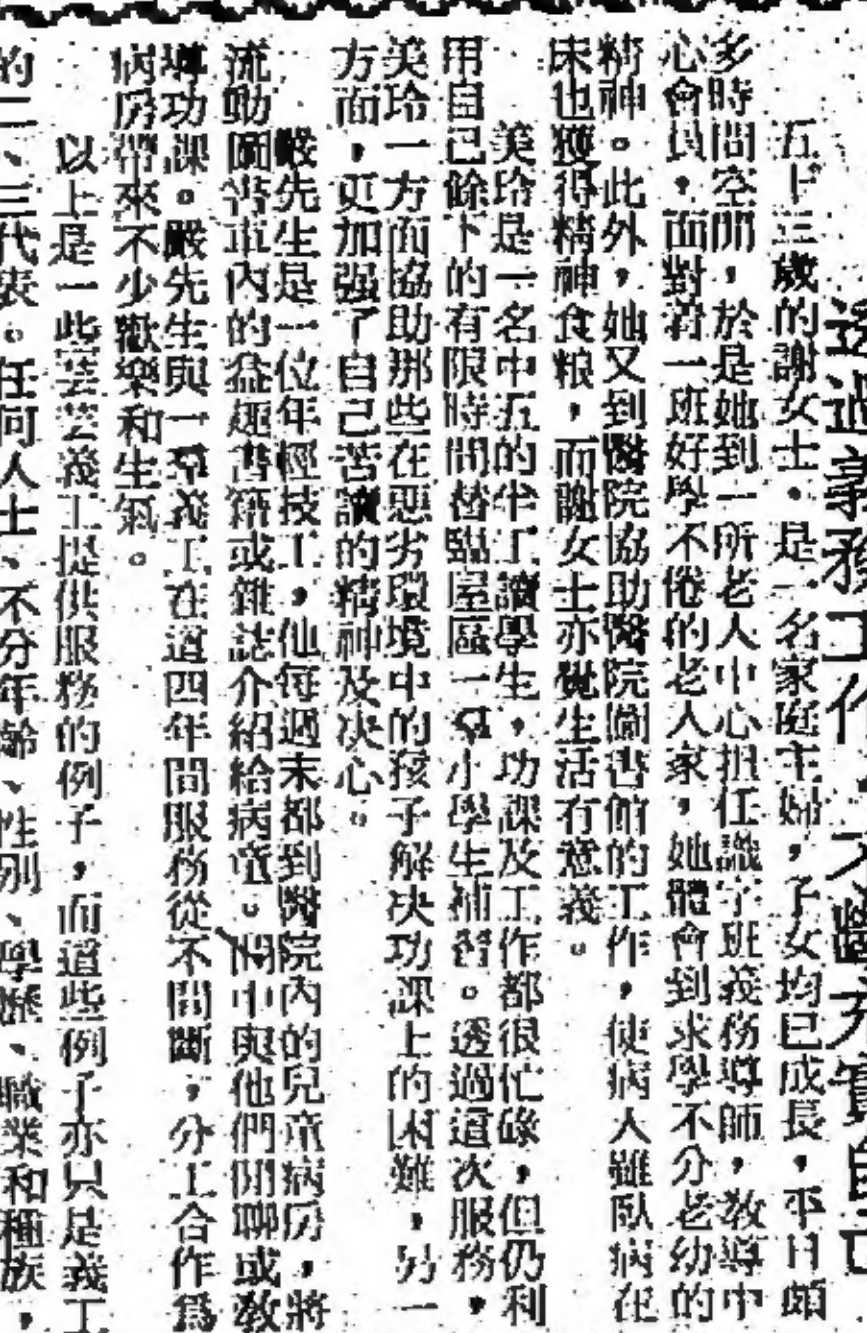 透過義務工作，不斷充實自己
五十三歲的謝女士。是一名家庭主婦，子女均已成長，平日頗
多時間空閒，於是她到一所老人中心担任識字班義務導師，教導中
心會員，面對着一班好學不倦的老人家，她體會到求學不分老幼的
精神。此外，她又到醫院協助醫院圖書館的工作，使病人雖臥病在
床也獲得精神食粮，而謝女士亦覺生活有意義。
美玲是一名中五的半工讀學生，功課及工作都很忙碌，但仍利
用自己餘下的有限時間替臨屋區一羣小學生補習。透過這次服務，
美玲一方面協助那些在惡劣環境中的孩子解决功課上的困難，另一
方面，更加强了自己苦讀的精神及决心。
嚴先生是一位年輕技工，他每週末都到醫院內的兒童病房，將
流動圖書車內的益趣書籍或雜誌介紹給病童。間中與他們閒聊或教
導功課。嚴先生與一羣義工在這四年間服務從不間斷，分工合作爲
病房帶來不少歡樂和生氣。
以上是一些芸芸義工提供服務的例子，而這些例子亦只是義工
的二、三代表。任何人士、不分年齡、性別、學歷、職業和種族，